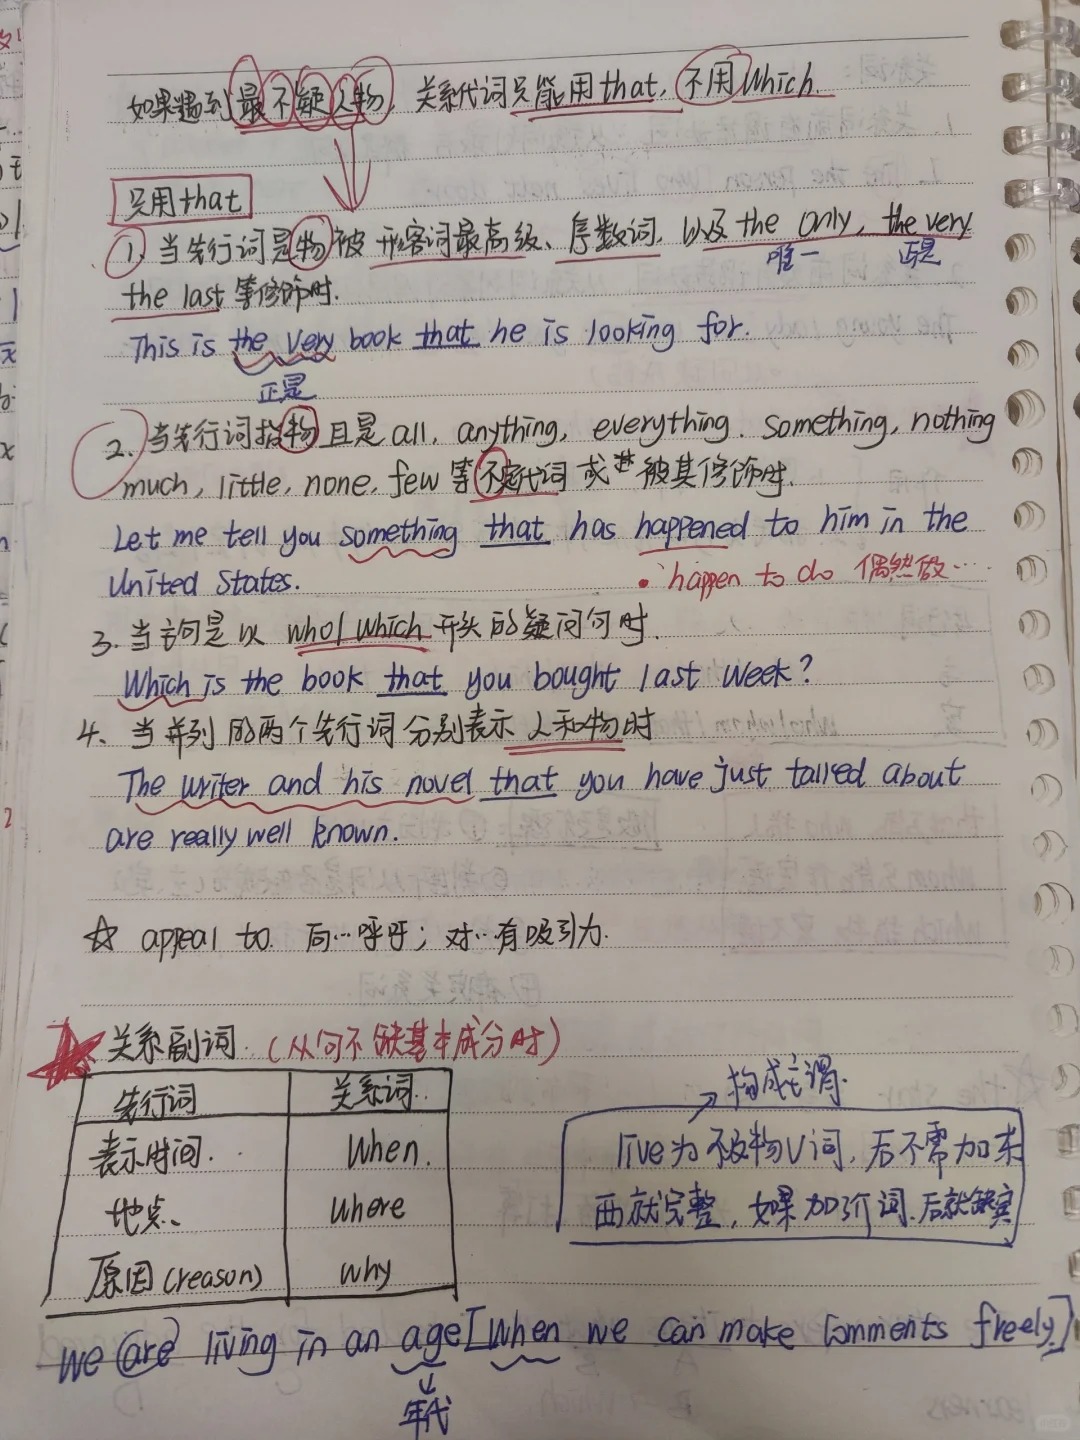 如果遇到最不疑人物，关系代词只能用that，不用Which.
只用that
①当先行词是物被形容词最高级、序数词，以及the only, the very
唯一 正是
the last等修饰时.
This is the very book that he is looking for.
正是
2.当先行词指物且是all, anything, everything. something, nothing
much, little, none, few等不定代词或被其修饰时.
Let me tell you something that has happened to him in the
United States.
• happen to do 偶然做…
3.当主句是以who/which开头的疑问句时.
Which is the book that you bought last week?
4、当并列的两个先行词分别表示人和物时
The writer and his novel that you have just talked about
are really well known.
☆ appeal to. 向…呼吁；对…有吸引力.
★关系副词.（从句不缺基本成分时）
先行词 关系词.
表示时间. When.
地点、 where
原因(reason) why
构成主谓.
live为不及物V词，后不需加东
西就完整，如果加介词.后就缺宾
we are living in an age[when we can make comments freely.]
年代